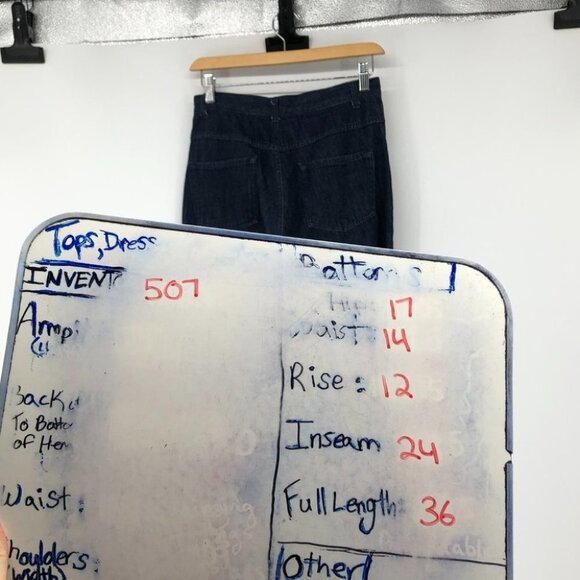 Tops, Dress
INVENT 507
Armpi
Back
To Botto
of Hem
Waist:
houlders:
width)
Bottoms
Hip: 17
Waist: 14
Rise: 12
Inseam 24
Full Length 36
Other